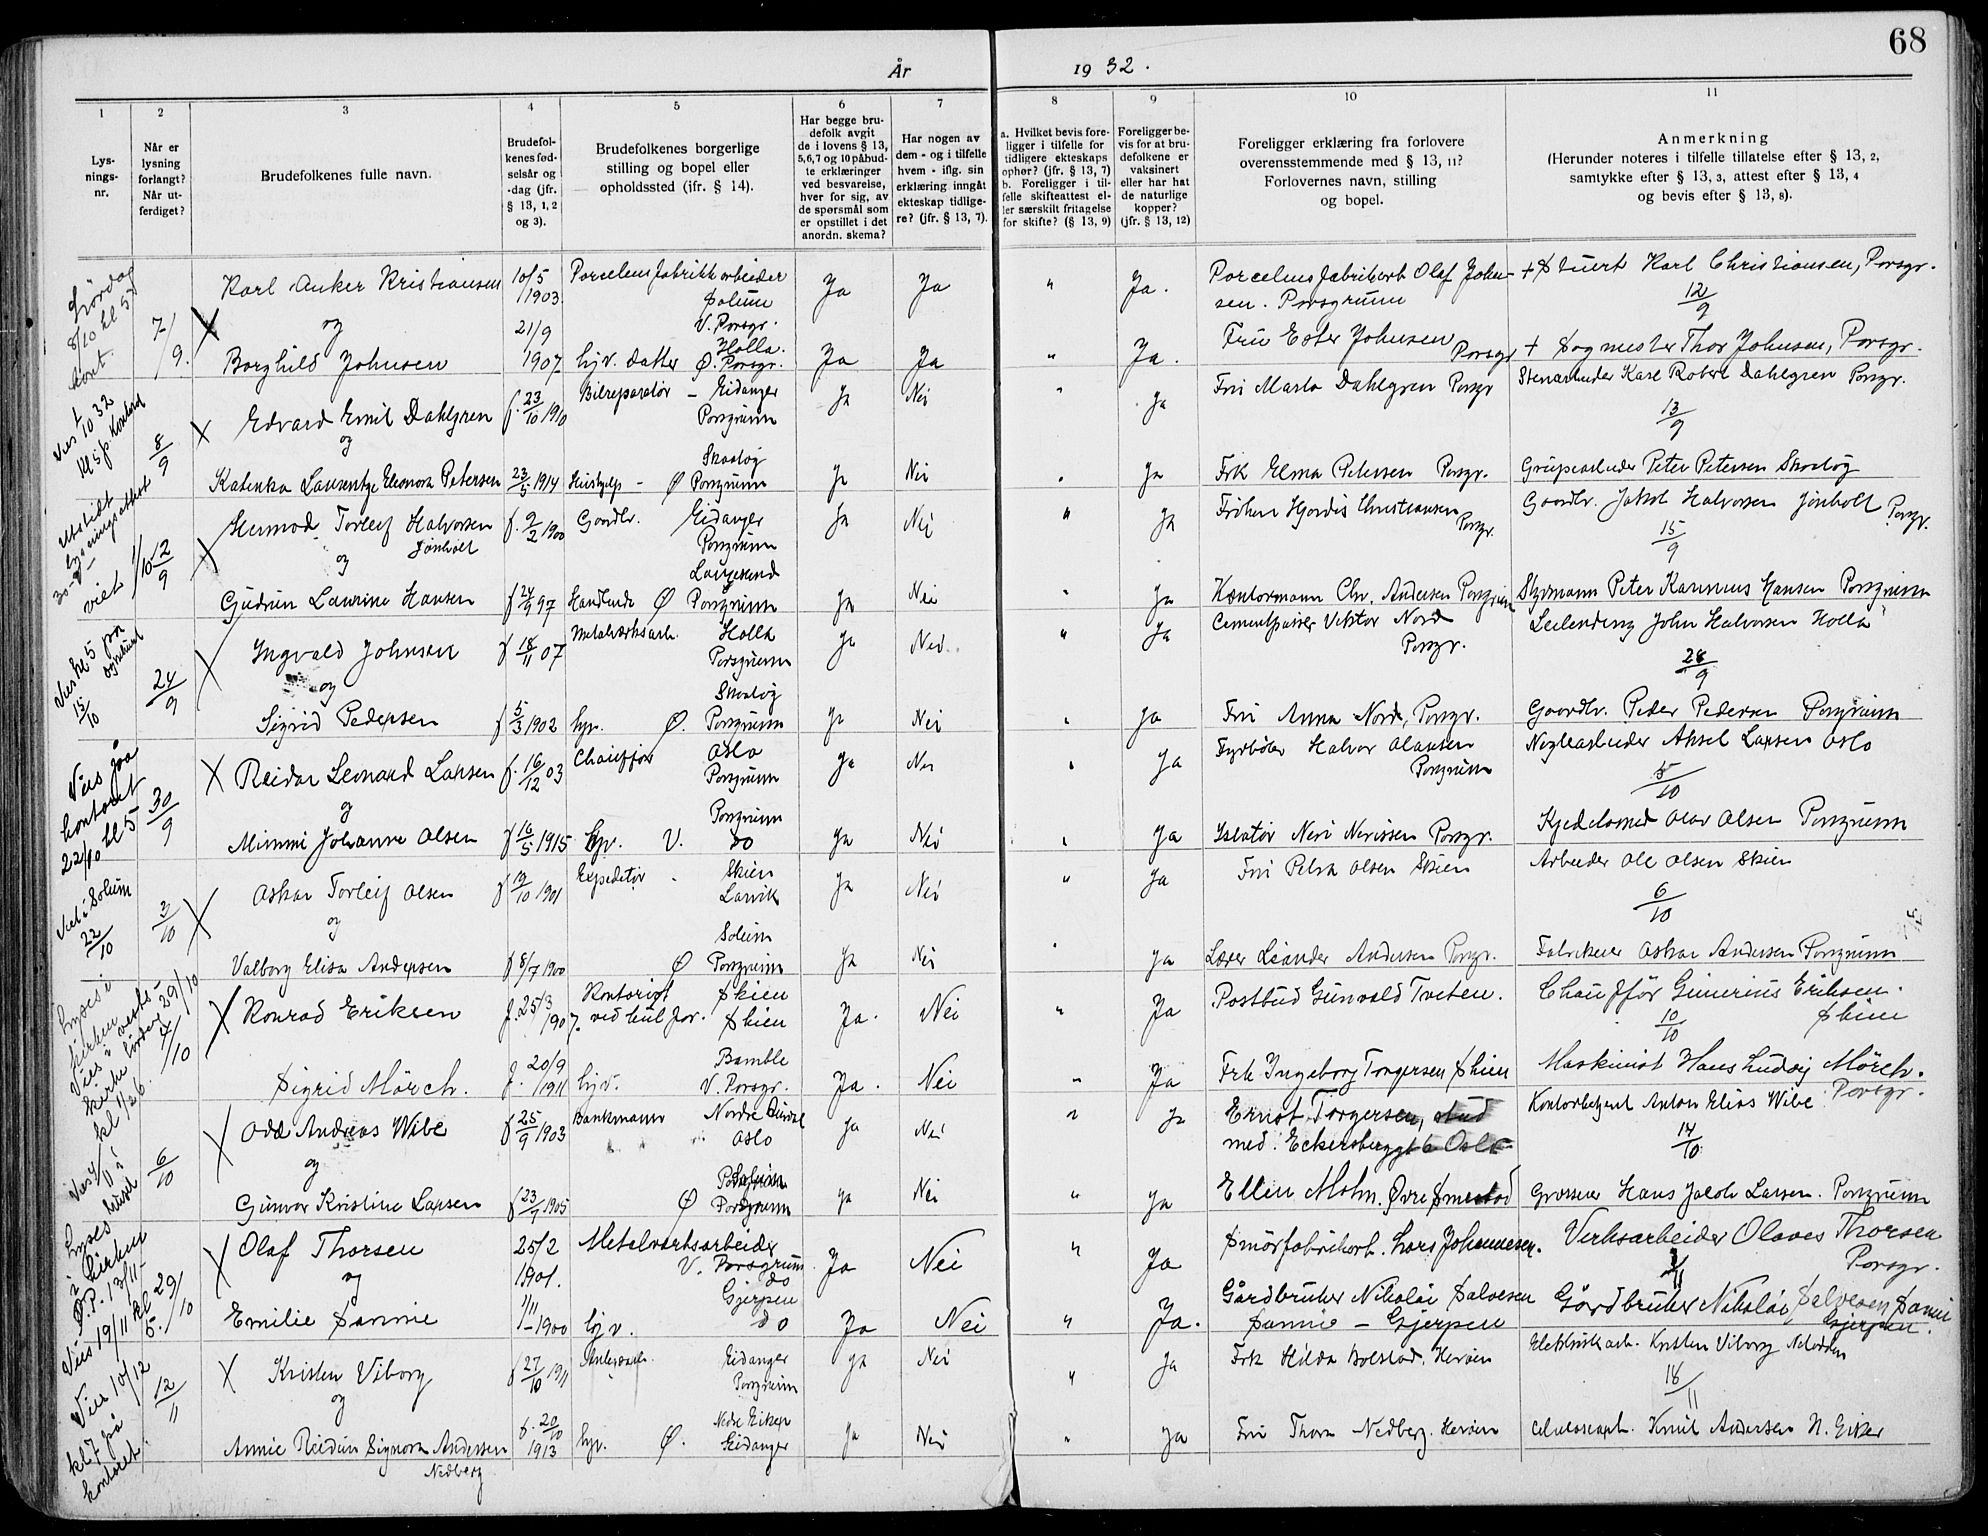 68
År 1932.
1 2 3 4 5 6 7 8 9 10 11
Lysningsnr.
Når er lysning forlangt? Når utferdiget?
Brudefolkenes fulle navn.
Brudefolkenes fødselsår og -dag (jfr. § 13, 1, 2 og 3).
Brudefolkenes borgerlige stilling og bopel eller opholdssted (jfr. § 14).
Har begge brudefolk avgit de i lovens § 13, 5, 6, 7 og 10 påbudte erklæringer ved besvarelse, hver for sig, av de spørsmål som er opstillet i det anordn. skema?
Har nogen av dem - og i tilfelle hvem - iflg. sin erklæring inngåt ekteskap tidligere? (jfr. § 13, 7).
a. Hvilket bevis foreligger i tilfelle for tidligere ekteskaps ophør? (jfr. § 13, 7) b. Foreligger i tilfelle skifteattest eller særskilt fritagelse for skifte? (§ 13, 9)
Foreligger bevis for at brudefolkene er vaksinert eller har hat de naturlige kopper? (jfr. § 13, 12)
Foreligger erklæring fra forlovere overensstemmende med § 13, 11? Forlovernes navn, stilling og bopel.
Anmerkning (Herunder noteres i tilfelle tillatelse efter § 13, 2, samtykke efter § 13, 3, attest efter § 13, 4 og bevis efter § 13, 8).
Lørdag 8/10 kl 5 kont. 7/9. X Karl Anker Kristiansen 10/5 1903 Porcelensfabrikkarbeider Solum V. Porsgr. Ja Ja " Ja. Porcelensfabrikarb Olaf Johnsen. Porsgrunn + Stuert Karl Christiansen, Porsgr. 12/9
og
Borghild Johnsen 21/9 1907 hjv. datter Holla. Ø. Porsgr. Ja Ja " Ja. Fru Ester Johnsen Porsgr + Sogmester Thor Johnsen, Porsgr.
Vies 1/10 32 kl 5 p. Kontoret 8/9 X Edvard Emil Dahlgren f. 23/10 1910 Bilreparatør - Eidanger Porsgrunn Ja Nei " Ja Fru Marta Dahlgren Porsgr Stenarbeider Karl Robert Dahlgren Porsgr. 13/9
og
Katinka Laurentze Eleonora Petersen 23/5 1914 Hushjelp - Ø Skotfos Porsgrunn Ja Nei " Ja Frk Elma Petersen Porsgr. Grupearbeider Peter Petersen
Utstedt lysningsattest 30-9- viet 1/10 12/9 X Hermod Torleif Halvorsen Jønholt f. 9/2 1900 Gaardbr. Eidanger Porsgrunn Ja Nei " Ja Frøken Hjørdis Christiansen Porsgr. Gaardbr. Jakob Halvorsen Jønholt Porsgr. 15/9
og
Gudrun Laurine Hansen f 24/9 97 Handlende Ø Langesund Porsgrunn Ja Nei " Ja Kontormann Chr. Andersen Porsgrunn Styrmann Peter Hansen Porsgrunn
Vies kl 5 på 15/10 24/9 X Ingvald Johnsen f 18/11 07 Metalverksarb. Holla Porsgrunn Ja Nei " Ja Cementstøiper Viktor Nord Porsgr. Leilending John Halvorsen Holla 28/9
og
Sigrid Pedersen f 5/3 1902 hjv. Ø. Porsgrunn Ja Nei " Ja Fru Anna Nord, Porsgr. Gaardbr. Peder Pedersen Porsgrunn
Vies på kontoret 22/10 kl 5 30/9 X Reidar Leonard Larsen f. 16/12 03 Chauffør Oslo Porsgrunn Ja Nei " Ja Fyrbøter Halvor Olausen Porsgrunn Aksel Larsen Oslo 5/10
og
Mimmi Johanne Olsen f 16/5 1915 hjv. V. Porsgrunn do Ja Nei " Ja Isolatør Neri Nerissen Porsgr. Kjedelsmed Olav Olsen Porsgrunn
Viet i Solum 22/10 3/10 X Oskar Torleif Olsen f 19/10 1901 Expeditør - Skien Larvik Ja Nei " Ja Fru Petra Olsen Skien Arbeider Ole Olsen Skien 6/10
og
Valborg Elisa Andersen f 8/7 1900 Ø Solum Porsgrunn Ja Nei " Ja Lærer Leander Andersen Porsgr. Oskar Andersen Porsgrunn
Lyses i kirken Vies i vestsidekirke lørdag 29/10 kl 1/2 6. 4/10 X Konrad Eriksen f. 25/3 1907. Kontorist ved kul for. Skien Skien Ja. Nei " Ja Postbud Gunvald Tveten. Chauffør Gunerius Eriksen. Skien 10/10
Sigrid Mörch. f. 20/9 1911 hjv. Bamble V. Porsgr. Ja. Nei " Ja Frk Ingeborg Torgersen Skien Maskinist Hans Ludvig Mörch. Porsgr.
6/10 X Odd Andreas Wibe f 25/9 1903 Bankmann Nordre Aurdal Oslo Ja Nei " Ja Ernst Torgersen, stud med. Eckersberggt 6 Oslo Kontorbetjent Anton Elias Wibe 14/10
og
Gunvor Kristine Larsen f 23/7 1905 Ø Porsgrunn Ja Nei " Ja Ellen Mohn. Øvre Smestad Grosserer Hans Jacob Larsen. Porsgrunn
Lyses i Kirken Ø.P. 13/11 - Vies 19/11 kl 5. 29/10 X Olaf Thorsen 25/2 1901. Metalverksarbeider V. Porsgrunn do Ja Nei " Ja Smörfabrikarb. Lars Johannesen. Verksarbeider Olaves Thorsen Porsgr. 1/11
og
Emilie Sannie 1/11 - 1900 hjv. Gjerpen do Ja Nei " Ja. Gårdbruker Nikolai Salvesen Sannie - Gjerpen Gårdbruker Nikolai Salvesen Sannie Gjerpen.
Vies 10/12 kl 7 på kontoret. 12/11 X Kristen Viborg f 27/10 1911 Eidanger Porsgrunn Ja Nei " Ja Frk Hilda Bolstad. Herøen Elektrikarb. Kristen Viborg Notodden 18/11
og
Annie Reidun Signora Andersen Nedberg f. 20/10 1913 hjv. Ø. Nedre Eiker Eidanger Ja Nei " Ja Fru Thora Nedberg. Herøen Celulosearb. Emil Andersen N. Eiker